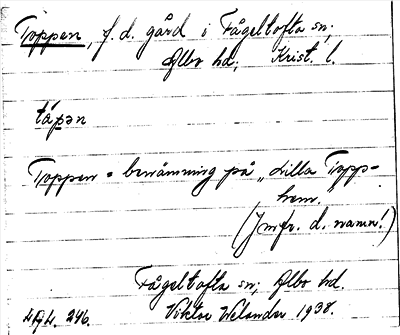 Toppen, f. d. gård i Fågeltofta sn;
Albo hd; Krist. l.
tåpən
Toppen = benämning på „Lilla Topp-
hem."
(Jmfr. d. namn!)
Fågeltofta sn; Albo hd.
Viktor Welander 1938.
246.